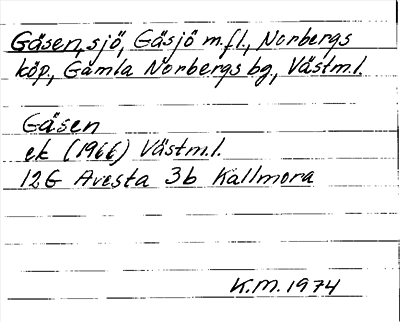 Gåsen, sjö, Gåsjö m.fl., Norbergs
köp., Gamla Norbergs bg, Västm.l.
Gåsen
ek (1966) Västm.l.
12G Avesta 3b Kallmora
K.M. 1974